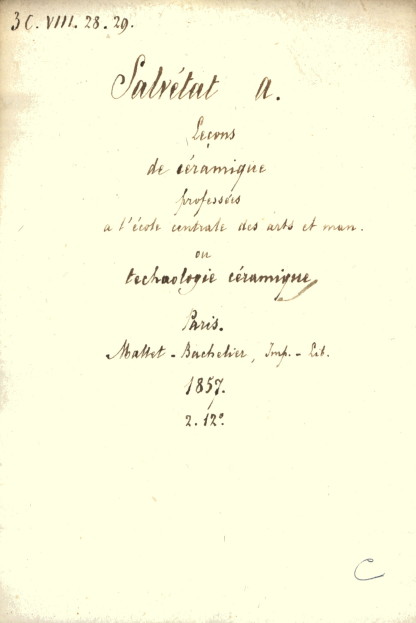 3 C. VIII. 28. 29.
Salvétat A.
Leçons
de céramique
professées
a l'école centrale des arts et man.
ou
technologie céramique
Paris.
Mallet - Bachelier, Imp. - Lib.
1857.
2. 12°.
C